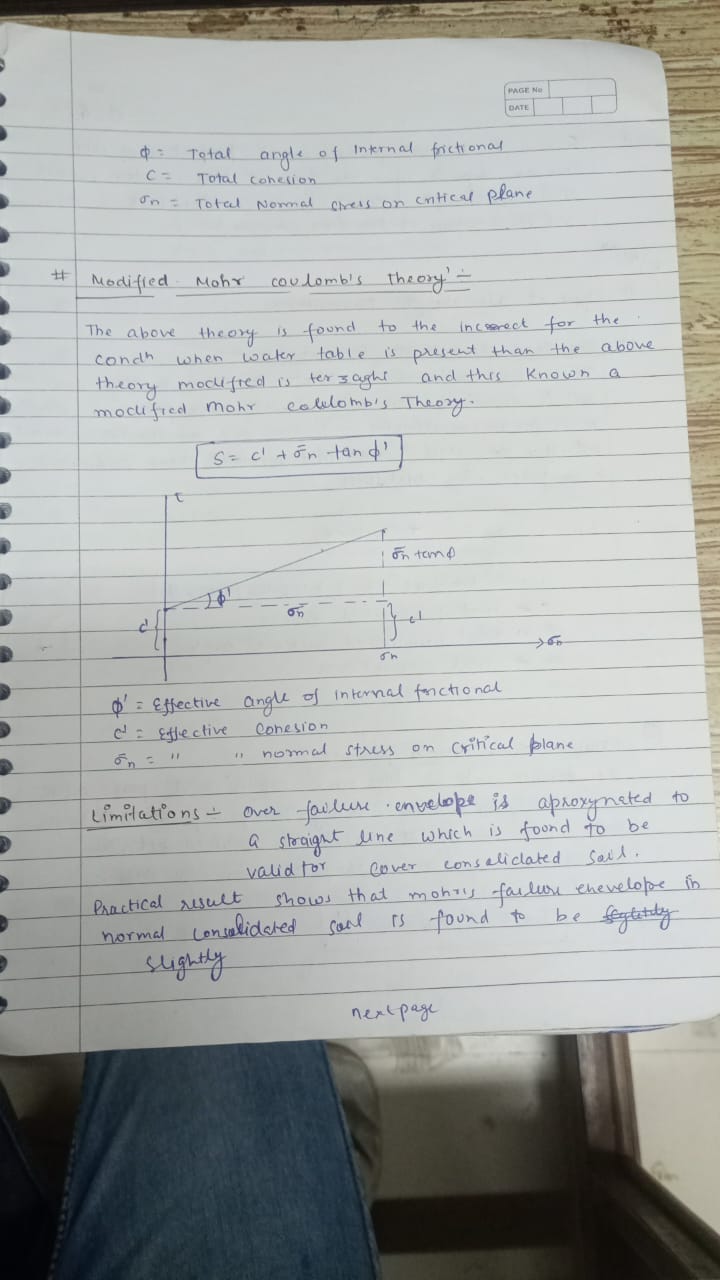 PAGE No
DATE
ϕ = Total angle of Internal frictional
C = Total cohesion
σn = Total Normal stress on critical plane
# Modified Mohr coulomb's theory' :-
The above theory is found to the incorrect for the
condn when water table is present than the above
theory modified is terzaghi and this known a
modified mohr colulomb's Theory.
S = c' + σ̄n tan ϕ'
τ
σ̄n tan ϕ
ϕ'
σ̄n
c'
c'
σn
σn
ϕ' = Effective angle of internal frictional
c' = Effective Cohesion
σ̄n = " " normal stress on critical plane
Limitations :- Over failure envelope is aproxymated to
a straight line which is foond to be
valid for Cover consolidated Soil.
Practical result shows that mohr's failure enevelope in
normal consolidated soil is found to be
slightly
next page